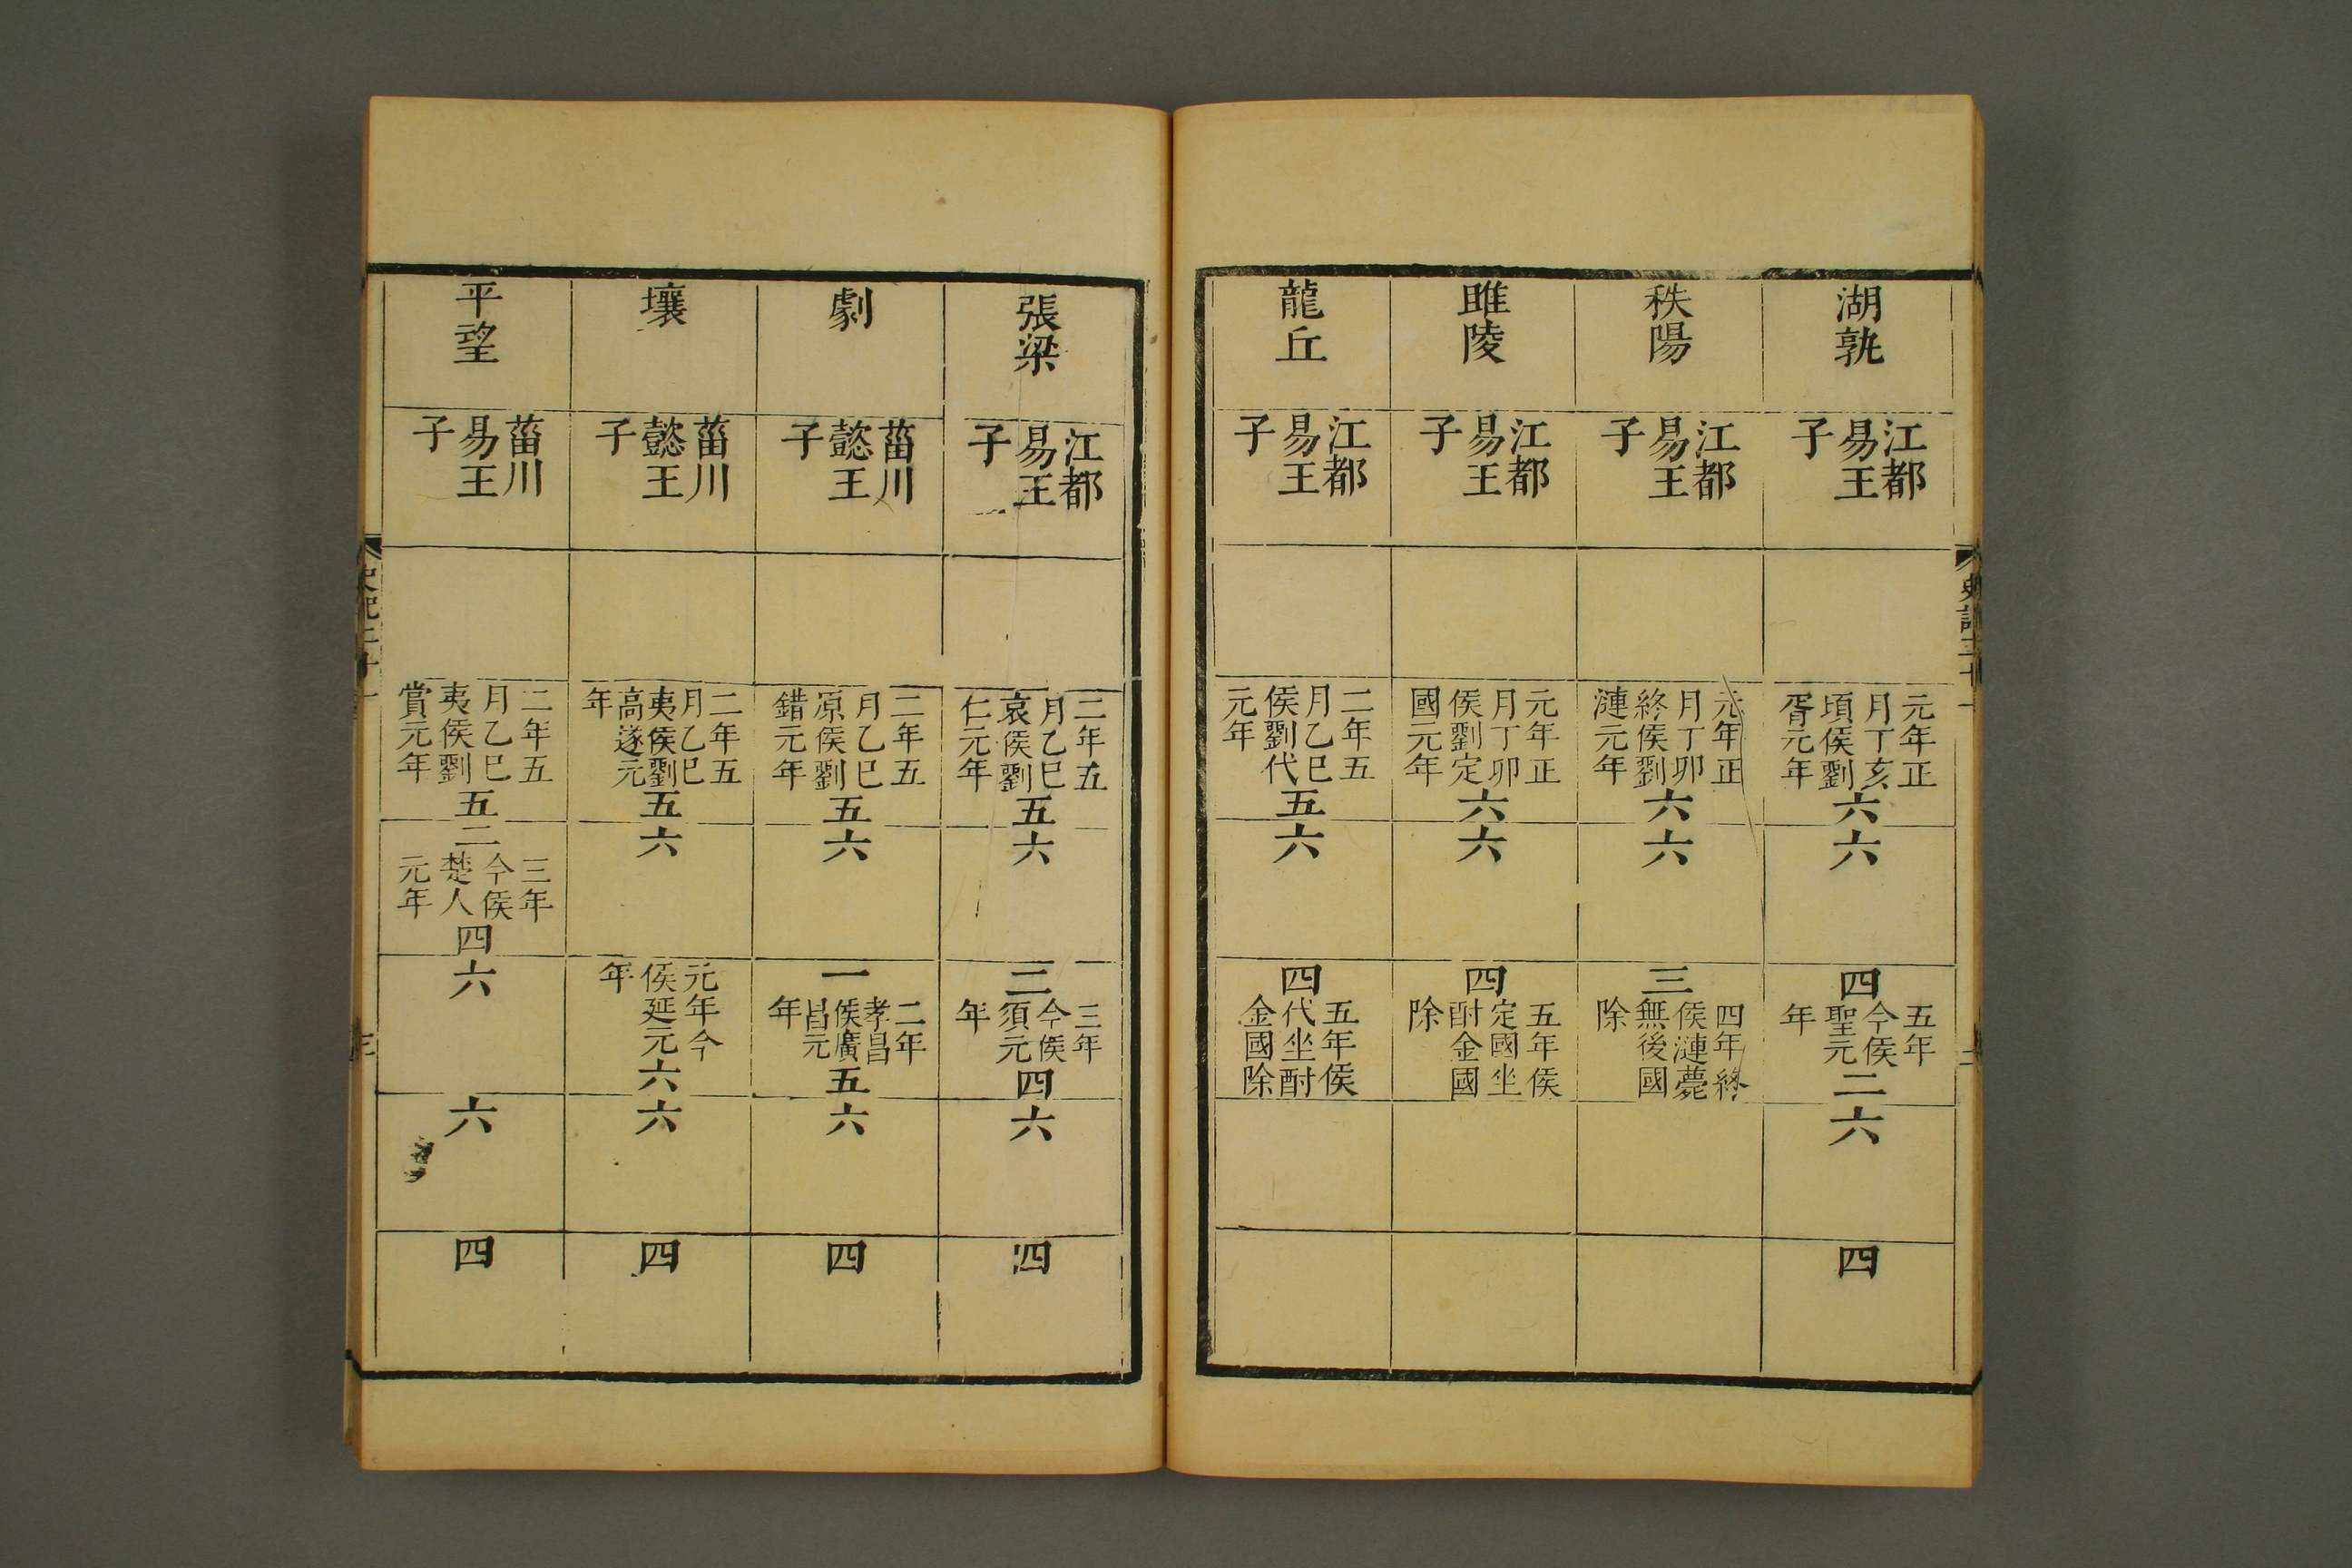 湖孰
江都
易王
子
元年正
月丁亥
頃侯劉
胥元年
六
六
四
五年
今侯
聖元
年
二
六
四
秩陽
江都
易王
子
元年正
月丁卯
終侯劉
漣元年
六
六
三
四年終
侯漣薨
無後國
除
睢陵
江都
易王
子
元年正
月丁卯
侯劉定
國元年
六
六
四
五年侯
定國坐
酎金國
除
龍丘
江都
易王
子
二年五
月乙巳
侯劉代
元年
五
六
四
五年侯
代坐酎
金國除
張梁
江都
易王
子
二年五
月乙巳
哀侯劉
仁元年
五
六
二
三年
今侯
須元
年
四
六
四
劇
菑川
懿王
子
二年五
月乙巳
原侯劉
錯元年
五
六
一
二年
孝昌
侯廣
昌元
年
五
六
四
壤
菑川
懿王
子
二年五
月乙巳
夷侯劉
高遂元
年
五
六
元年今
侯延元
年
六
六
四
平望
菑川
易王
子
二年五
月乙巳
夷侯劉
賞元年
五
二
三年
今侯
楚人
元年
四
六
六
四